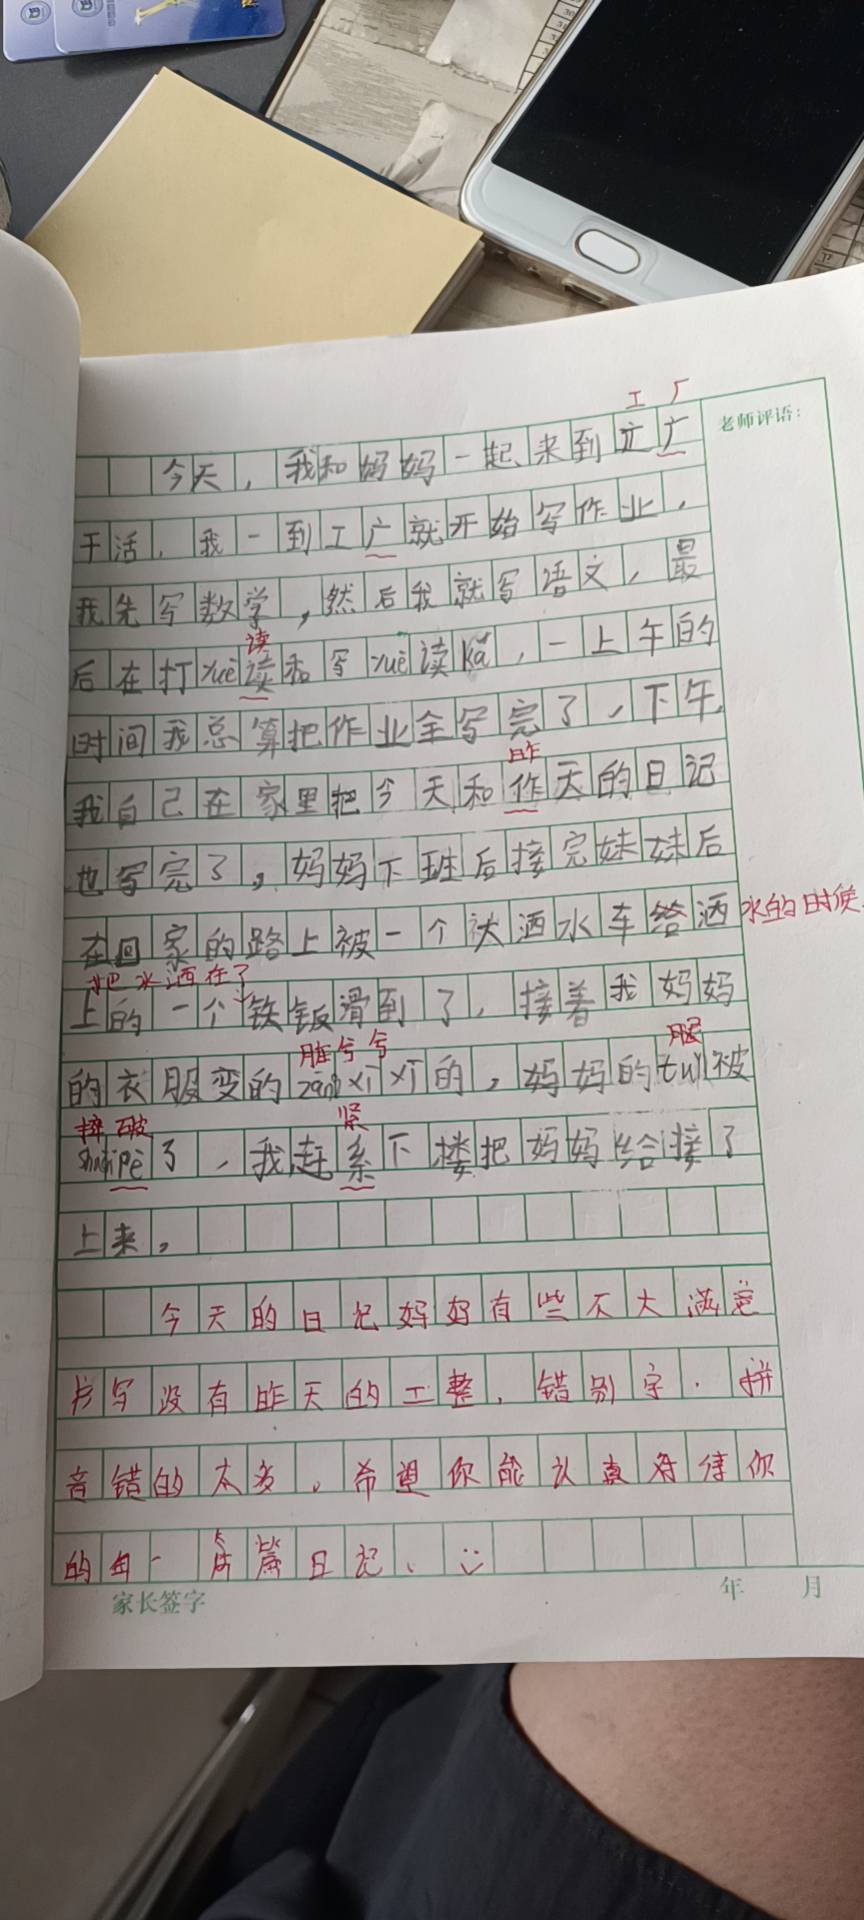 工厂
老师评语：
今天，我和妈妈一起来到广
干活，我一到工广就开始写作业，
我先写数学，然后我就写语文，最
读
后在打yuè读和写yuè读kǎ，一上午的
时间我总算把作业全写完了，下午，
昨
我自己在家里把今天和作天的日记
也写完了，妈妈下班后接完妹妹后
在回家的路上被一个大洒水车给洒水的时候
把水洒在了
上的一个铁钣滑到了，接着我妈妈
脏兮兮 腿
的衣服变的zāng xī xī的，妈妈的tuǐ被
摔破 紧
shuāi pè了，我赶系下楼把妈妈给接了
上来。
今天的日记妈妈有些不大满意
书写没有昨天的工整，错别字．拼
音错的太多，希望你能认真对待你
的每一篇日记、
家长签字 年 月